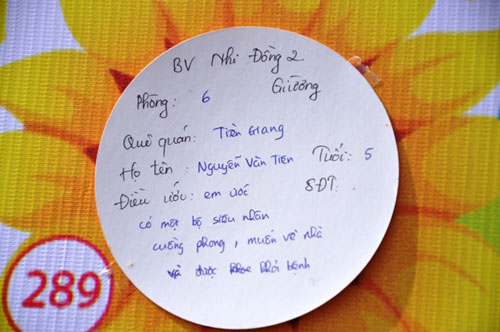 BV Nhi Đồng 2.
Phòng: 6 Giường
Quê quán: Tiền Giang
Họ tên: Nguyễn Văn Tiên Tuổi: 5
Điều ước: em ước SĐT:
có một bộ siêu nhân
cuồng phong, muốn về nhà
và được khỏi bệnh
289